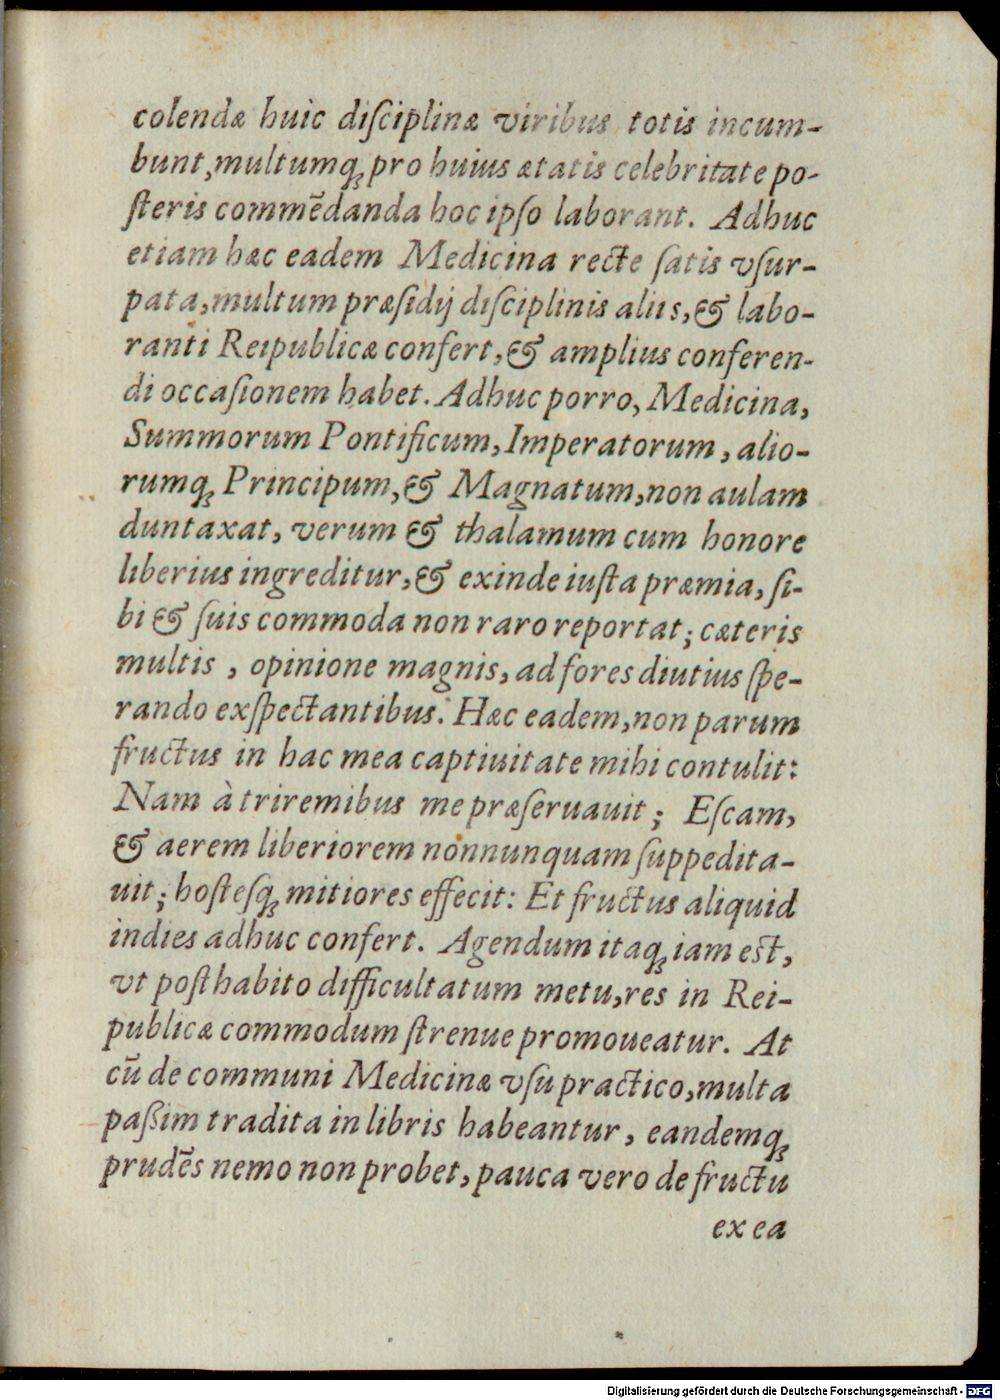 colendæ huic diſciplinæ viribus totis incum-
bunt, multumqꝫ pro huius ætatis celebritate po-
ſteris commēdanda hoc ipſo laborant. Adhuc
etiam hæc eadem Medicina recte ſatis vſur-
pata, multum præſidij diſciplinis aliis, & labo-
ranti Reipublicæ confert, & amplius conferen-
di occaſionem habet. Adhuc porro, Medicina,
Summorum Pontificum, Imperatorum, alio-
rumqꝫ Principum, & Magnatum, non aulam
duntaxat, verum & thalamum cum honore
liberius ingreditur, & exinde iuſta præmia, ſi-
bi & ſuis commoda non raro reportat; cæteris
multis, opinione magnis, ad fores diutius ſpe-
rando exſpectantibus. Hæc eadem, non parum
fructus in hac mea captiuitate mihi contulit:
Nam à triremibus me præſeruauit; Eſcam,
& aerem liberiorem nonnunquam ſuppedita-
uit; hoſteſqꝫ mitiores effecit: Et fructus aliquid
indies adhuc confert. Agendum itaqꝫ iam est,
vt poſthabito difficultatum metu, res in Rei-
publicæ commodum ſtrenue promoueatur. At
cū de communi Medicinæ vſu practico, multa
paßim tradita in libris habeantur, eandemqꝫ
prudēs nemo non probet, pauca vero de fructu
ex ea
Digitalisierung gefördert durch die Deutsche Forschungsgemeinschaft - DFG